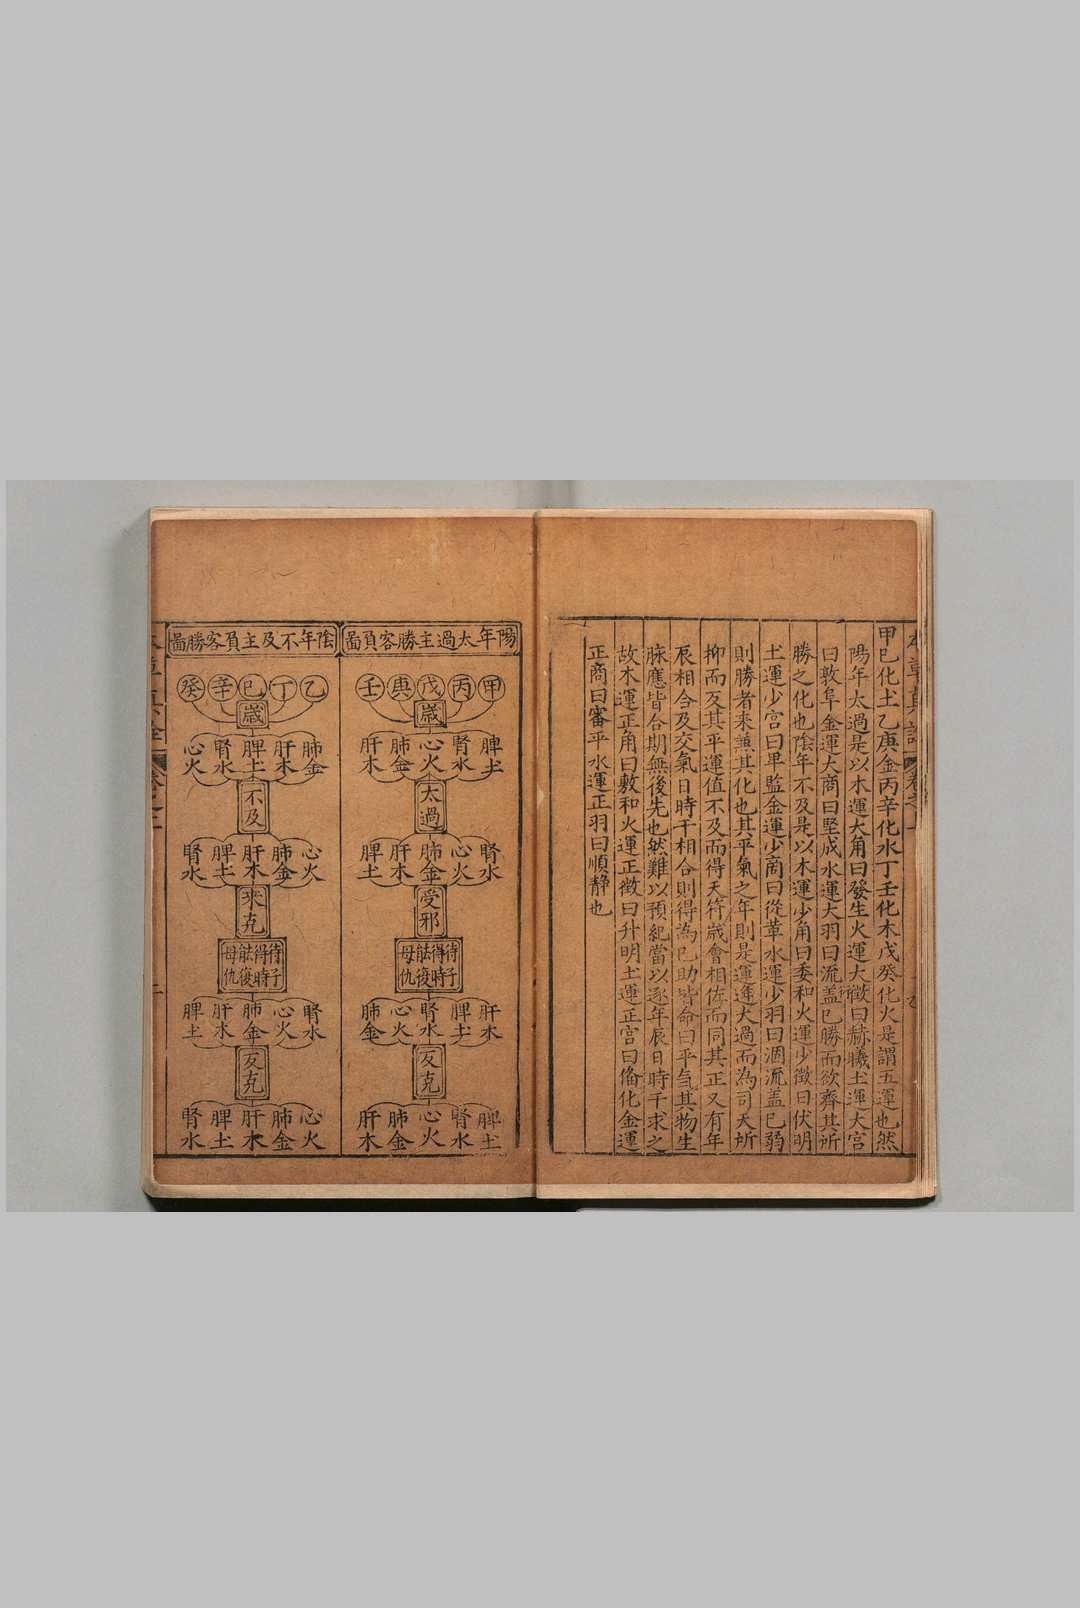 甲巳化土乙庚金丙辛化水丁壬化木戊癸化火是謂五運也然
陽年太過是以木運大角曰發生火運大徵曰赫曦土運大宮
曰敦阜金運大商曰堅成水運大羽曰流蓋已勝而欲齊其所
勝之化也陰年不及是以木運少角曰委和火運少徵曰伏明
土運少宮曰卑監金運少商曰從革水運少羽曰涸流蓋已弱
則勝者來兼其化也其平氣之年則是運逢大過而為司天所
抑而反其平運值不及而得天符歲會相佐而同其正又有年
辰相合及交氣日時干相合則得為已助皆命曰平気其物生
脉應皆合期無後先也然難以預紀當以逐年辰日時干求之
故木運正角曰敷和火運正徵曰升明土運正宮曰俻化金運
正商曰審平水運正羽曰順静也
陽年太過主勝客負圖
甲丙戊庚壬
歲
脾土 腎水 心火 肺金 肝木
太過
腎水 心火 肺金 肝木 脾土
受邪
待子得時能復母仇
肝木 脾土 腎水 心火 肺金
反克
脾土 腎水 心火 肺金 肝木
陰年不及主負客勝圖
乙丁巳辛癸
歲
肺金 肝木 脾土 腎水 心火
不及
心火 肺金 肝木 脾土 腎水
來克
待子得時能復母仇
腎水 心火 肺金 肝木 脾土
反克
心火 肺金 肝木 脾土 腎水